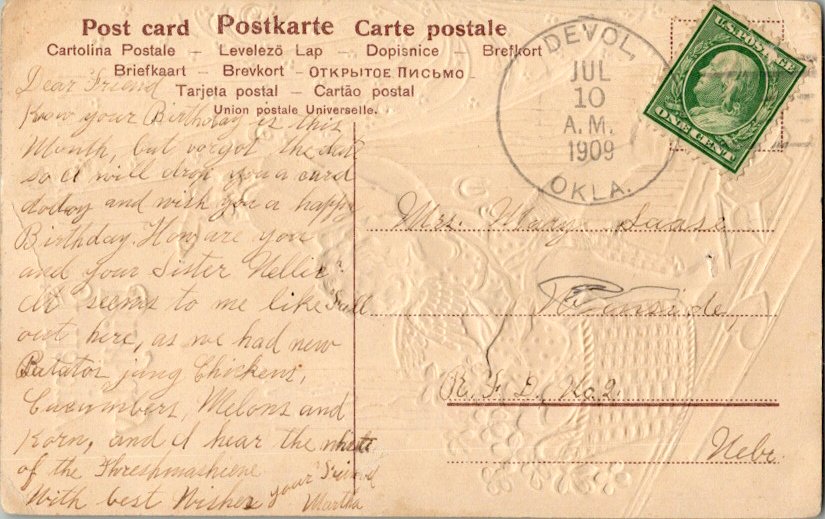 Post card Postkarte Carte postale
Cartolina Postale — Levelező Lap — Dopisnice — Brefkort
Briefkaart — Brevkort — ОТКРЫТОЕ ПИСЬМО —
Tarjeta postal — Cartão postal
Union postale Universelle.
DEVOL,
JUL
10
A.M.
1909
OKLA.
U.S. POSTAGE
ONE CENT
Dear Friend
Know your Birthday is this
Month, but vorgot the date
so I will drop you a card
today and wish you a happy
Birthday. How are you
and your Sister Nellie?
It seems to me like
out here, as we had new
Patatos jung Chickens,
Cucumbers, Melons and
Korn, and I hear the
of the Threshmashiene
With best Wishes your Friend
Martha
Mrs. Mary
Winside,
R. F. D. No. 2.
Nebr.